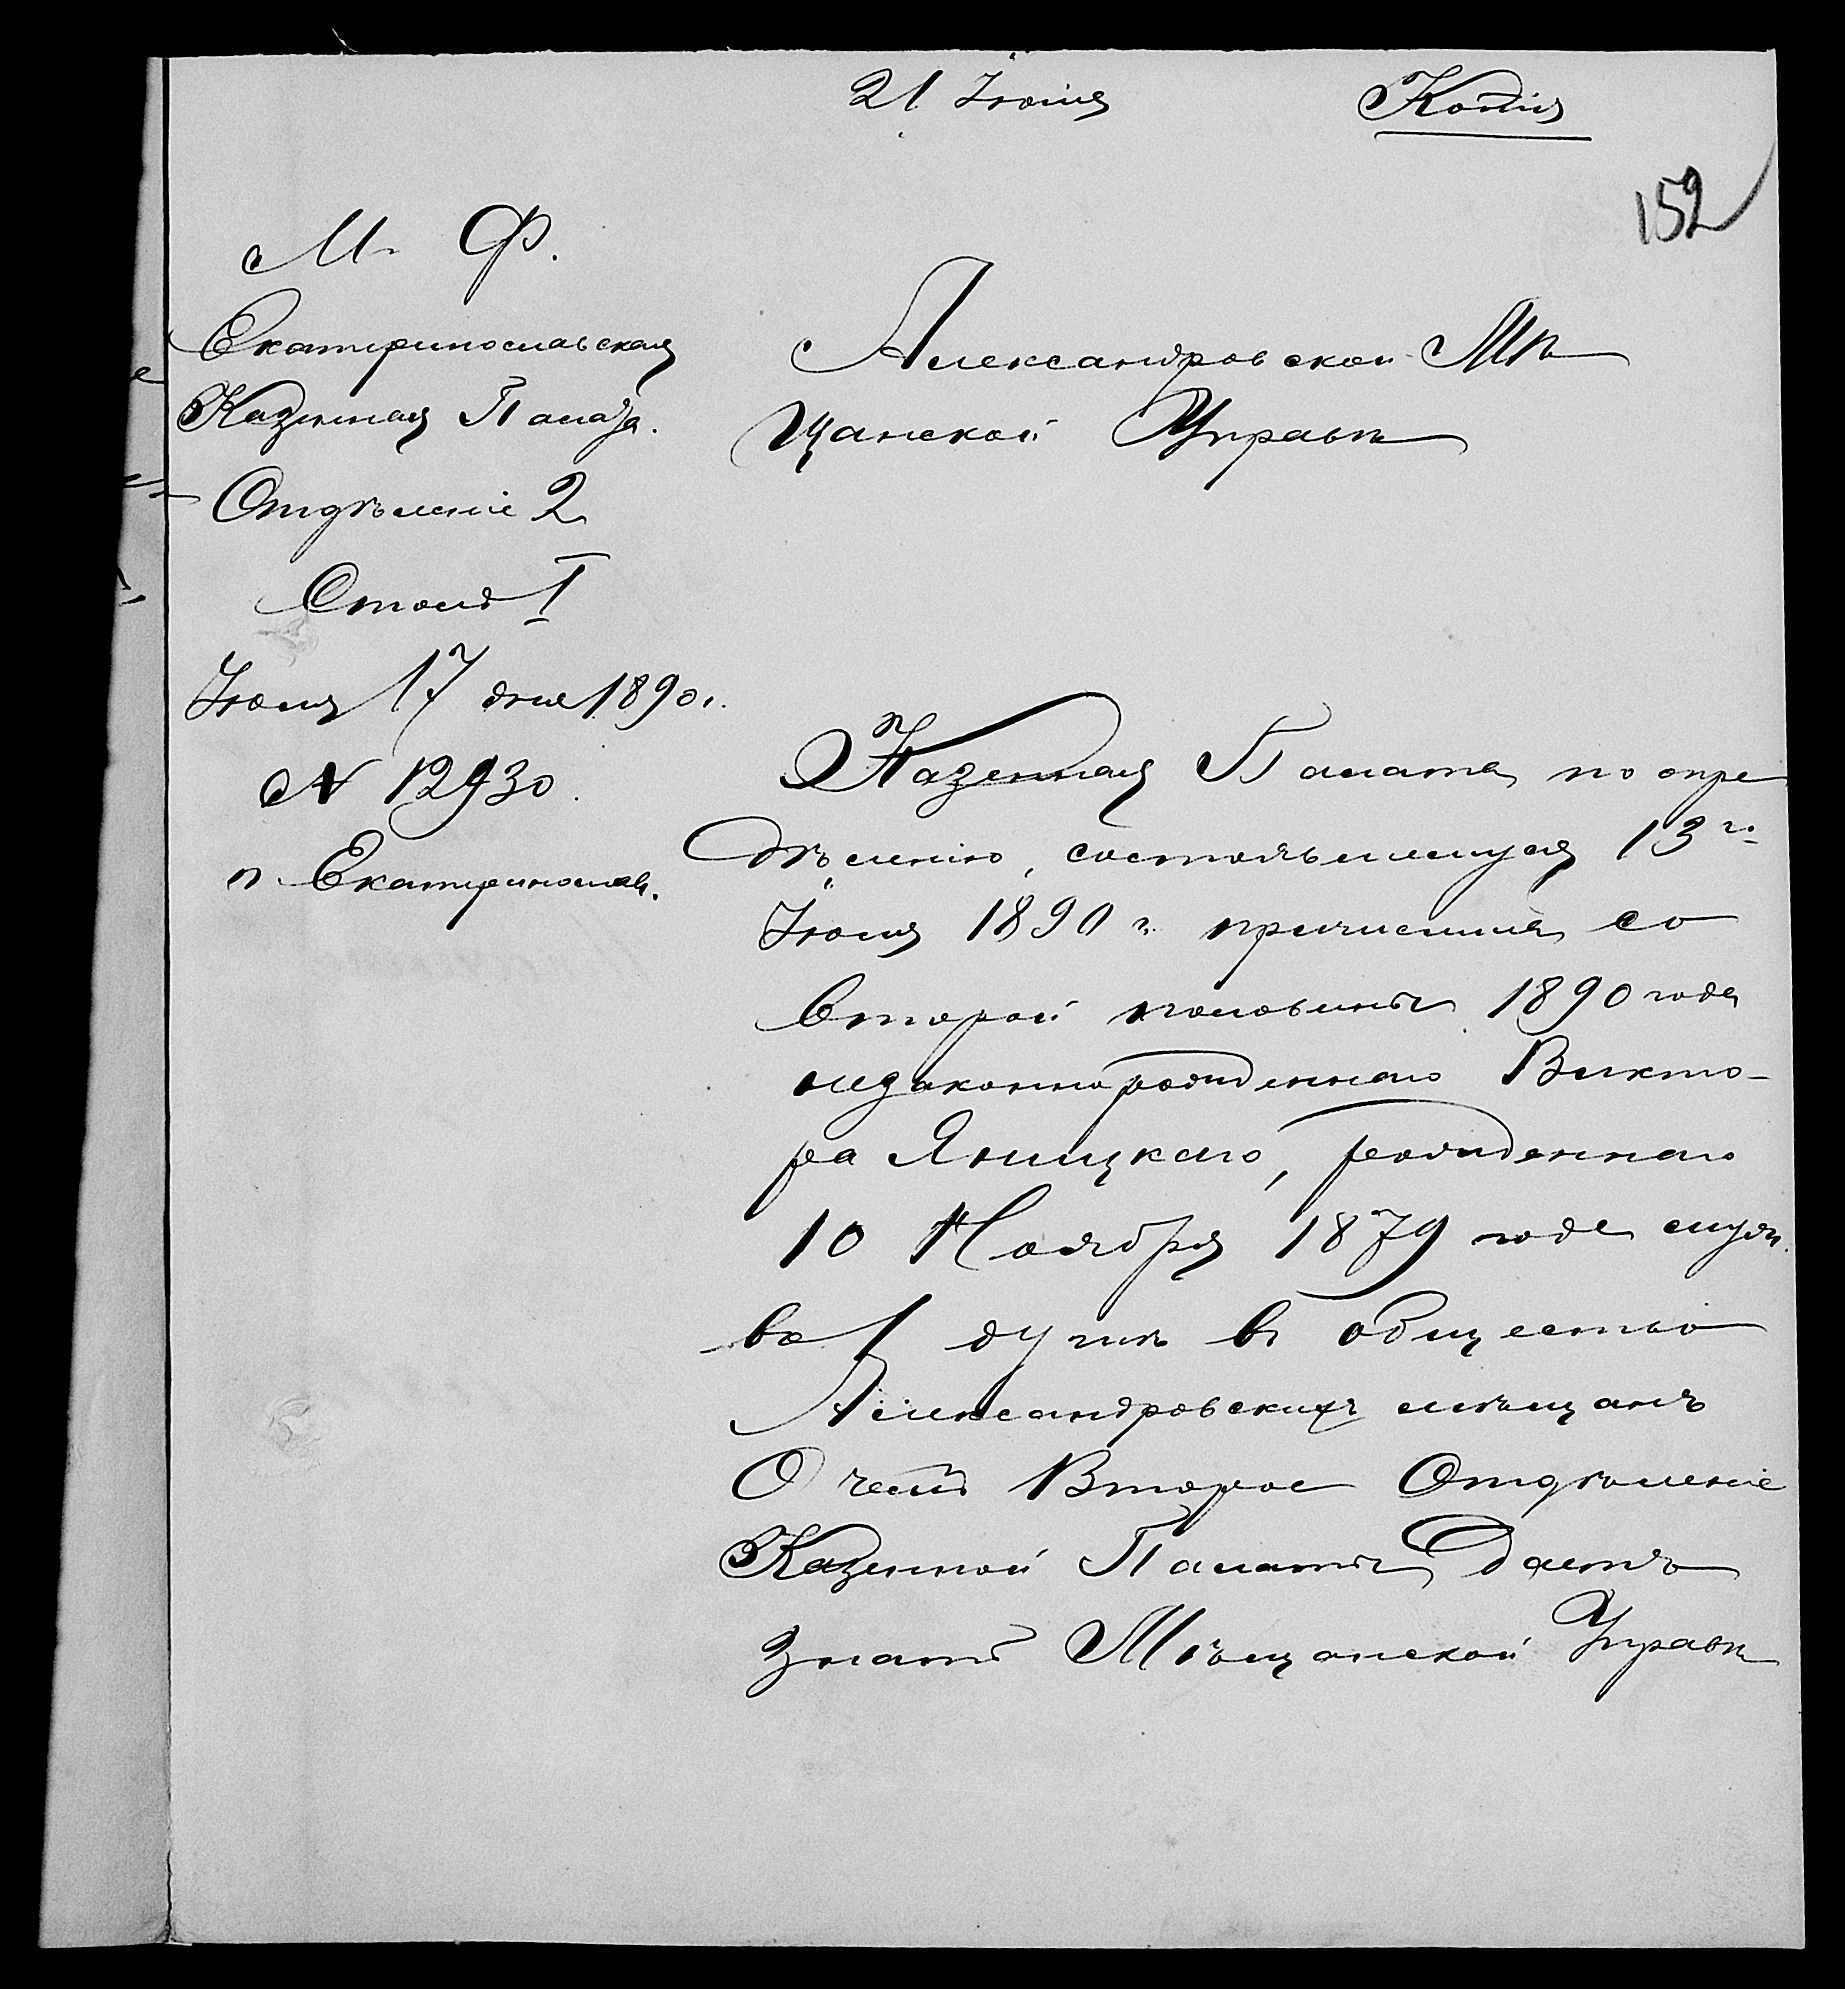 21 Іюня
Копія
152
М. Ф.
Екатеринославская
Казенная Палата.
Отдѣленіе 2
Столъ I
Іюня 17 дня 1890 г.
N 12930.
г. Екатеринослав.
Александровской Мѣ
щанской Управѣ
Казенная Палата, по опре
дѣленію, состоявшемуся 13 г.
Іюня 1890 г. причислила со
второй половины 1890 года
незаконнорожденнаго Викто-
ра Яницкаго, рожденнаго
10 Ноября 1879 года
въ 1 душѣ въ общество
Александровскихъ мѣщанъ
О чемъ Второе Отдѣленіе
Казенной Палаты даетъ
знать Мѣщанской Управѣ